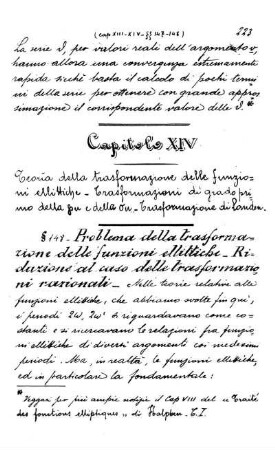 (Cap. XIII - XIV - §§ 147-148) 223
La serie ϑ, per valori reali dell'argomento v,
hanno allora una convergenza estremamente
rapida sicchè basta il calcolo di pochi termi
ni della serie per ottenere con grande appros
simazione il corrispondente valore delle ϑ.*
Capitolo XIV
Teoria della trasformazione delle funzio-
ni ellittiche - Trasformazioni di grado pri
mo della pu e della σu. - Trasformazione di Landen.
§ 148 - Problema della trasforma-
zione delle funzioni ellittiche - Ri-
duzione al caso delle trasformazio
ni razionali - Nelle teorie relative alle
funzioni ellittiche, che abbiamo svolte fin qui,
i periodi 2ω, 2ω' si riguardavano come co-
stanti e si ricercavano le relazioni fra funzio
ni ellittiche di diversi argomenti coi medesimi
periodi. Ma, in realtà, le funzioni ellittiche,
ed in particolare la fondamentale:
* Veggasi per più ampie notizie il Cap VIII del « Traité
des fonctions elliptiques » di Halphen - T. I.